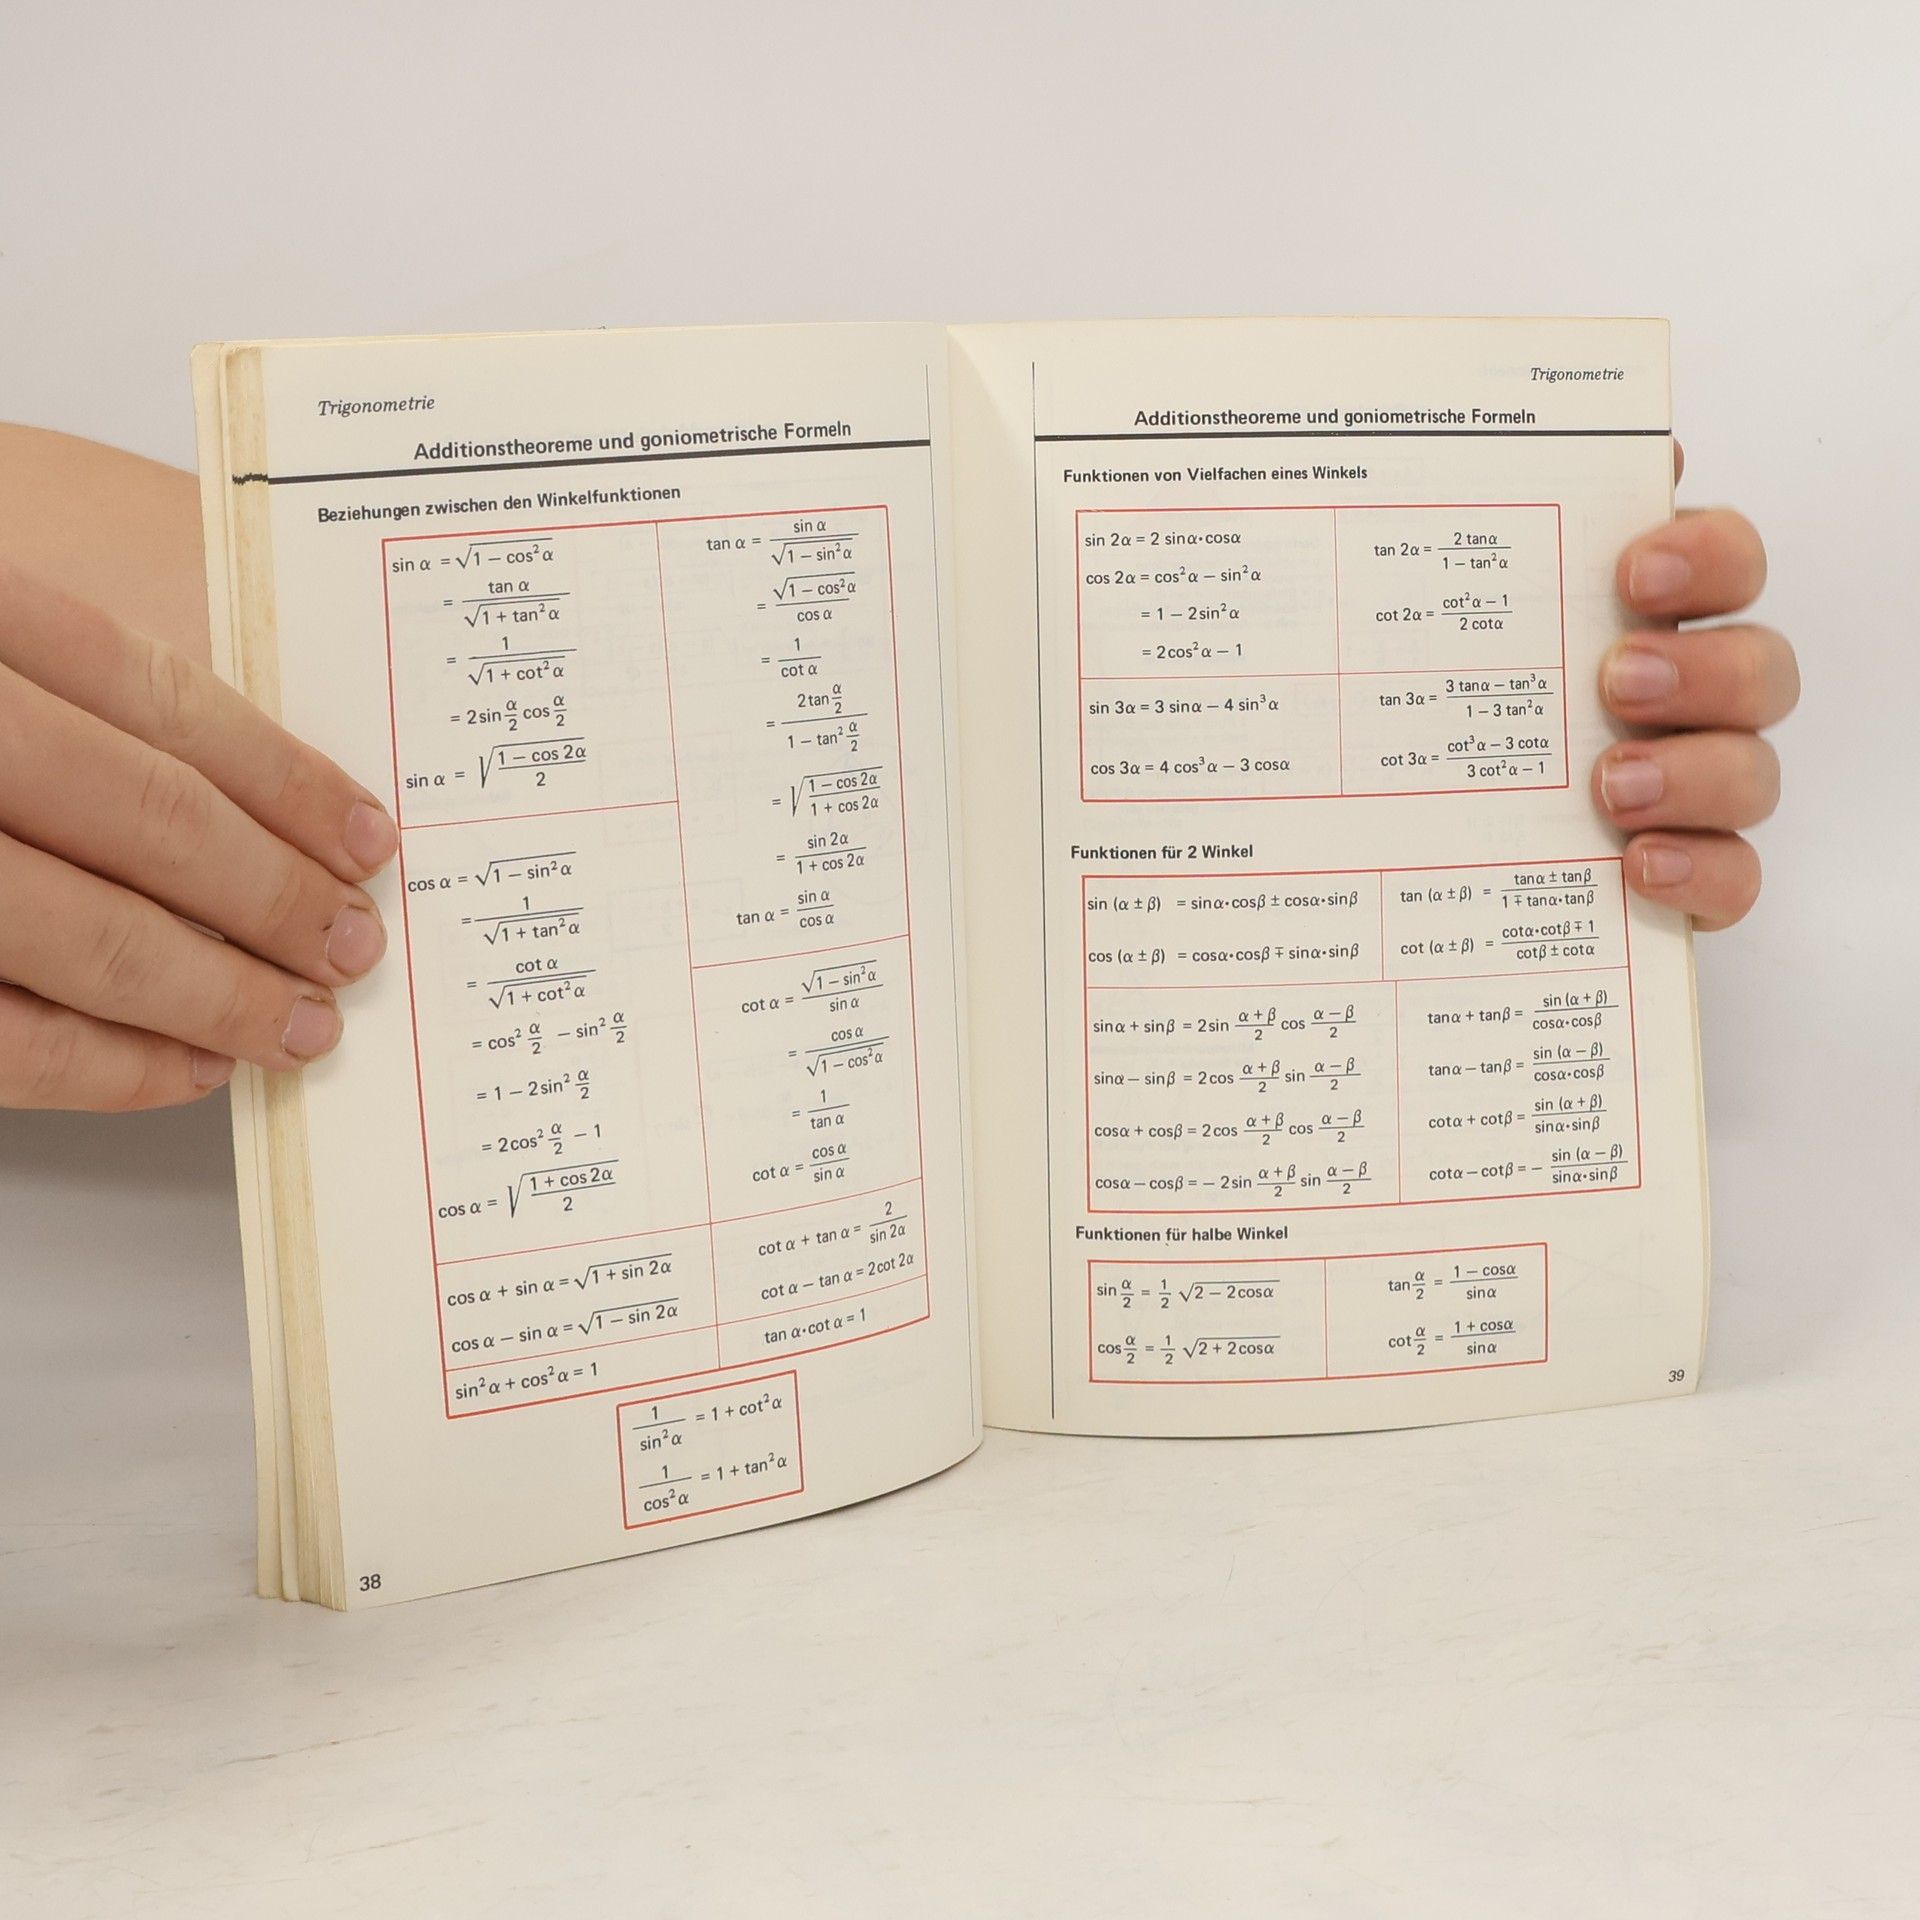 Trigonometrie
Additionstheoreme und goniometrische Formeln
Beziehungen zwischen den Winkelfunktionen
sin α = √(1 − cos² α)
= tan α / √(1 + tan² α)
= 1 / √(1 + cot² α)
= 2 sin α/2 cos α/2
sin α = √((1 − cos 2α) / 2)
cos α = √(1 − sin² α)
= 1 / √(1 + tan² α)
= cot α / √(1 + cot² α)
= cos² α/2 − sin² α/2
= 1 − 2 sin² α/2
= 2 cos² α/2 − 1
cos α = √((1 + cos 2α) / 2)
cos α + sin α = √(1 + sin 2α)
cos α − sin α = √(1 − sin 2α)
sin² α + cos² α = 1
tan α = sin α / √(1 − sin² α)
= √(1 − cos² α) / cos α
= 1 / cot α
= 2 tan α/2 / (1 − tan² α/2)
= √((1 − cos 2α) / (1 + cos 2α))
= sin 2α / (1 + cos 2α)
tan α = sin α / cos α
cot α = √(1 − sin² α) / sin α
= cos α / √(1 − cos² α)
= 1 / tan α
cot α = cos α / sin α
cot α + tan α = 2 / sin 2α
cot α − tan α = 2 cot 2α
tan α · cot α = 1
1 / sin² α = 1 + cot² α
1 / cos² α = 1 + tan² α
38
Trigonometrie
Additionstheoreme und goniometrische Formeln
Funktionen von Vielfachen eines Winkels
sin 2α = 2 sinα · cosα
cos 2α = cos² α − sin² α
= 1 − 2 sin² α
= 2 cos² α − 1
tan 2α = 2 tanα / (1 − tan² α)
cot 2α = (cot² α − 1) / 2 cotα
sin 3α = 3 sinα − 4 sin³ α
cos 3α = 4 cos³ α − 3 cosα
tan 3α = (3 tanα − tan³ α) / (1 − 3 tan² α)
cot 3α = (cot³ α − 3 cotα) / (3 cot² α − 1)
Funktionen für 2 Winkel
sin (α ± β) = sinα · cosβ ± cosα · sinβ
cos (α ± β) = cosα · cosβ ∓ sinα · sinβ
tan (α ± β) = (tanα ± tanβ) / (1 ∓ tanα · tanβ)
cot (α ± β) = (cotα · cotβ ∓ 1) / (cotβ ± cotα)
sinα + sinβ = 2 sin (α + β)/2 cos (α − β)/2
sinα − sinβ = 2 cos (α + β)/2 sin (α − β)/2
cosα + cosβ = 2 cos (α + β)/2 cos (α − β)/2
cosα − cosβ = − 2 sin (α + β)/2 sin (α − β)/2
tanα + tanβ = sin (α + β) / cosα · cosβ
tanα − tanβ = sin (α − β) / cosα · cosβ
cotα + cotβ = sin (α + β) / sinα · sinβ
cotα − cotβ = − sin (α − β) / sinα · sinβ
Funktionen für halbe Winkel
sin α/2 = 1/2 √(2 − 2 cosα)
cos α/2 = 1/2 √(2 + 2 cosα)
tan α/2 = (1 − cosα) / sinα
cot α/2 = (1 + cosα) / sinα
39